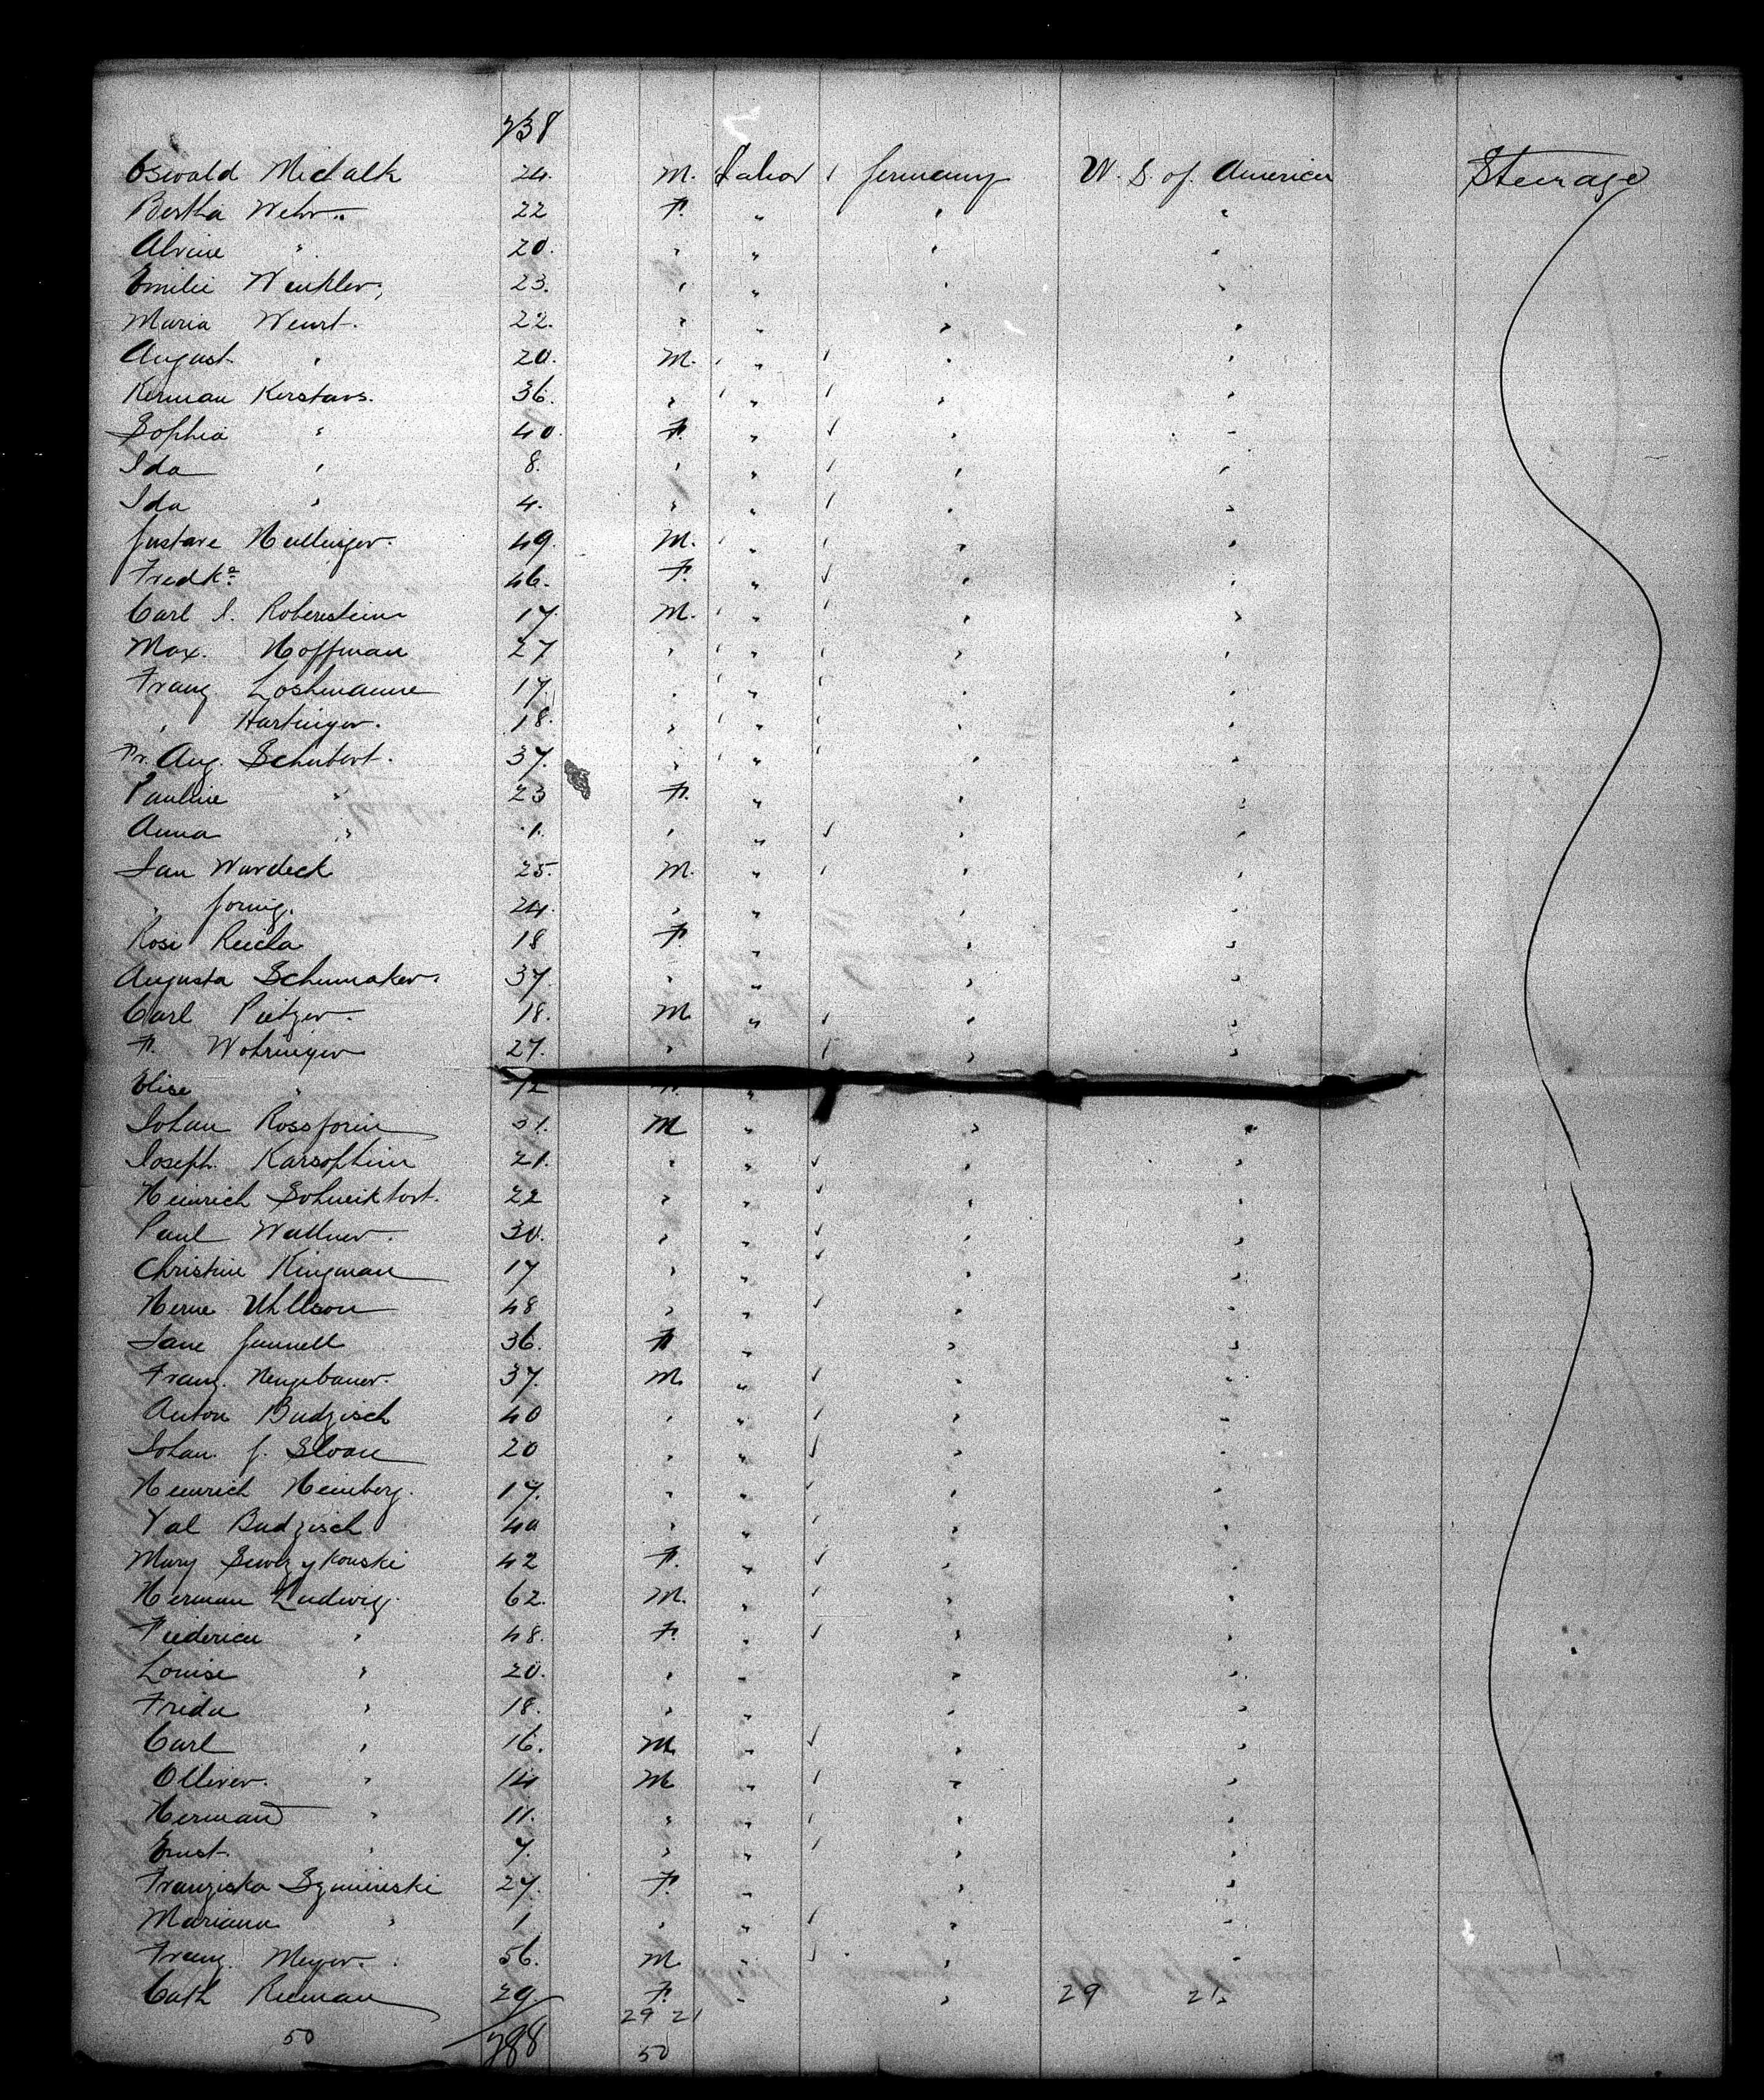 738
Oswald Michalk 24. M. Labor Germany U. S. of America Steerage
Bertha Wehr 22 F. " " "
Alvine " 20. " " " "
Emilie Winkler 23. " " " "
Maria Wendt. 22. " " " "
August " 20. M. " " "
Herman Kerstans. 36. " " " "
Sophia " 40. F. " " "
Ida " 8. " " " "
Ida " 4. " " " "
Gustave Hellinger. 49. M. " " "
Fredka 46. F. " " "
Carl I. Roberstein 17. M. " " "
Max. Hoffman 27 " " " "
Franz Loshmanne 17. " " " "
" Hartinger. 18. " " " "
Fr. Aug. Schubert. 37. " " " "
Pauline " 23 F. " " "
Anna " 1. " " " "
Jan Wardeck 25. M. " " "
" Gornig. 24. " " " "
Rosi Reicha 18 F. " " "
Augusta Schumaker. 37. " " " "
Carl Pietzer. 18. M " " "
F. Wohringer 27. " " " "
Elise " 12 F. "
Johan Rossforin 31. M " " "
Joseph. Karsophein 21. " " " "
Heinrich 22 " " " "
Paul Wallner. 30. " " " "
Christine Kingman 17 " " " "
Herne Uhllson 48 " " " "
Jane Gunnell 36. F " " "
Franz. Neugebauer. 37. M. " " "
Anton Budzisch 40 " " " "
Johan. G. Sloan 20 " " " "
Heinrich Heinberg. 17. " " " "
Val Budzisch 40 " " " "
Mary 42 F. " " "
Herman Ludwig. 62. M. " " "
Friederica " 48. F. " " "
Louise " 20. " " " "
Frida " 18. " " " "
Carl " 16. M. " " "
Olliver. " 14 M " " "
Herman " 11. " " " "
Ernst. " 7. " " " "
Franziska Szminieski 27. F. " " "
Mariana " 1 " " " "
Franz. Meyer. 56. M. " " "
Cath Rieman 29. F. " " 29 21
29 21
50 788 50